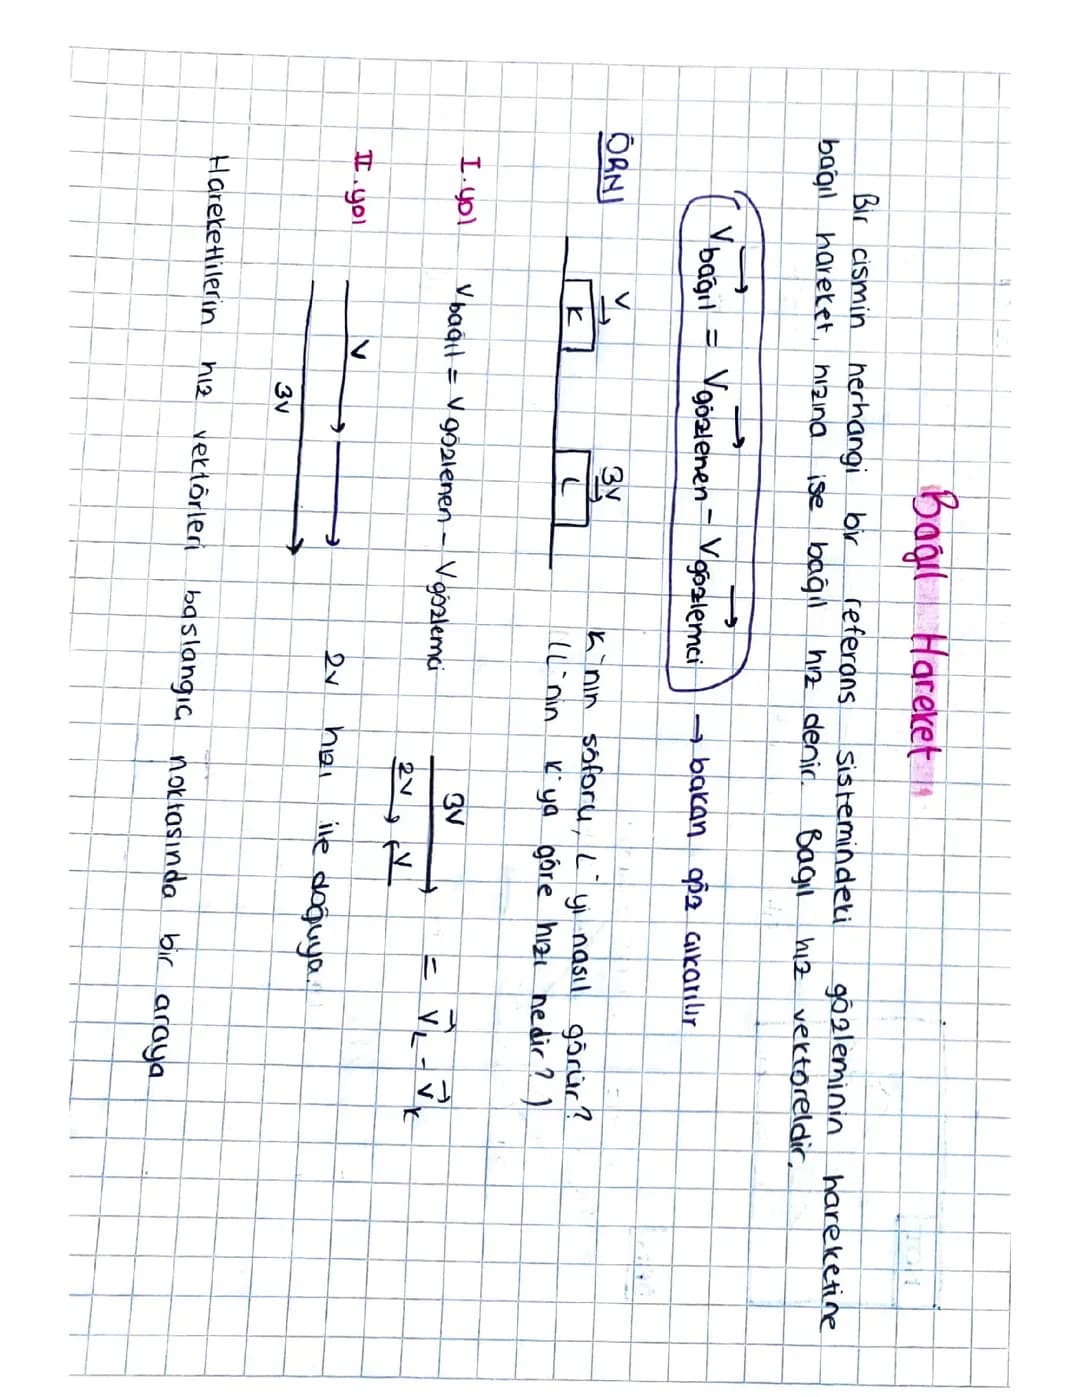 Bağıl Hareket
Bir cismin herhangi bir referans sistemindeki gözleminin hareketine
bağıl hareket, hızına ise bağıl hız denir. Bağıl hız vektöreldir.
Vbağıl = Vgözlenen - Vgözlemci → bakan göz çıkarılır
ÖRN/
V 3V
K L
K'nın şoförü, L'yi nasıl görür?
(L'nin K'ya göre hızı nedir?)
I. yol Vbağıl = Vgözlenen - Vgözlemci
3V
2V V
= VL - VK
II. yol
V
3V
2v hızı ile doğuya.
Hareketlilerin hız vektörleri başlangıç noktasında bir araya